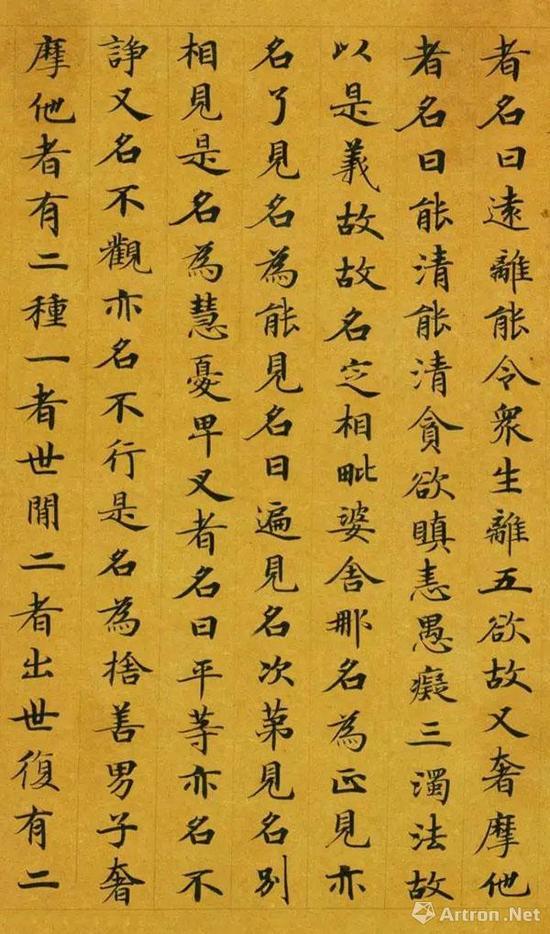 者名曰遠離能令衆生離五欲故又奢摩他
者名曰能清能清貪欲瞋恚愚癡三濁法故
以是義故故名定相毗婆舍那名為正見亦
名了見名為能見名曰遍見名次苐見名別
相見是名為慧憂畢叉者名曰平等亦名不
諍又名不觀亦名不行是名為捨善男子奢
摩他者有二種一者世間二者出世復有二
Artron.Net